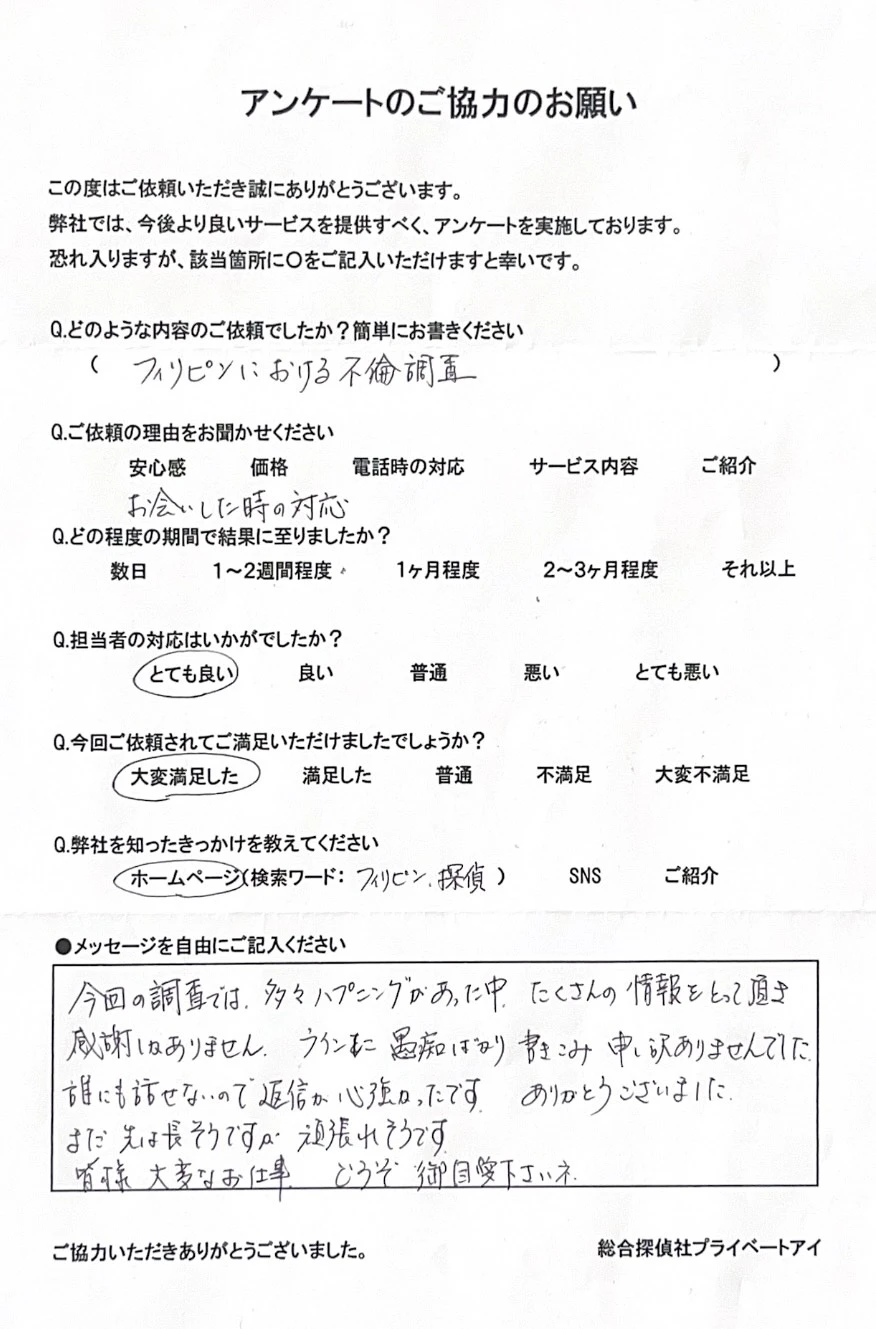 アンケートのご協力のお願い
この度はご依頼いただき誠にありがとうございます。
弊社では、今後より良いサービスを提供すべく、アンケートを実施しております。
恐れ入りますが、該当箇所に〇をご記入いただけますと幸いです。
Q.どのような内容のご依頼でしたか？簡単にお書きください
( フィリピンにおける不倫調査 )
Q.ご依頼の理由をお聞かせください
安心感 価格 電話時の対応 サービス内容 ご紹介
お会いした時の対応
Q.どの程度の期間で結果に至りましたか？
数日 1～2週間程度 1ヶ月程度 2～3ヶ月程度 それ以上
Q.担当者の対応はいかがでしたか？
とても良い 良い 普通 悪い とても悪い
Q.今回ご依頼されてご満足いただけましたでしょうか？
大変満足した 満足した 普通 不満足 大変不満足
Q.弊社を知ったきっかけを教えてください
ホームページ(検索ワード: フィリピン、探偵 ) SNS ご紹介
●メッセージを自由にご記入ください
今回の調査では、多々ハプニングがあった中、たくさんの情報をとって頂き
感謝しかありません。 愚痴ばかり書きこみ 申し訳ありませんでした。
誰にも話せないので返信が心強かったです。 ありがとうございました。
まだ先は長そうですが 頑張れそうです。
皆様 大変なお仕事。 どうぞ御自愛下さいネ。
ご協力いただきありがとうございました。
総合探偵社プライベートアイ